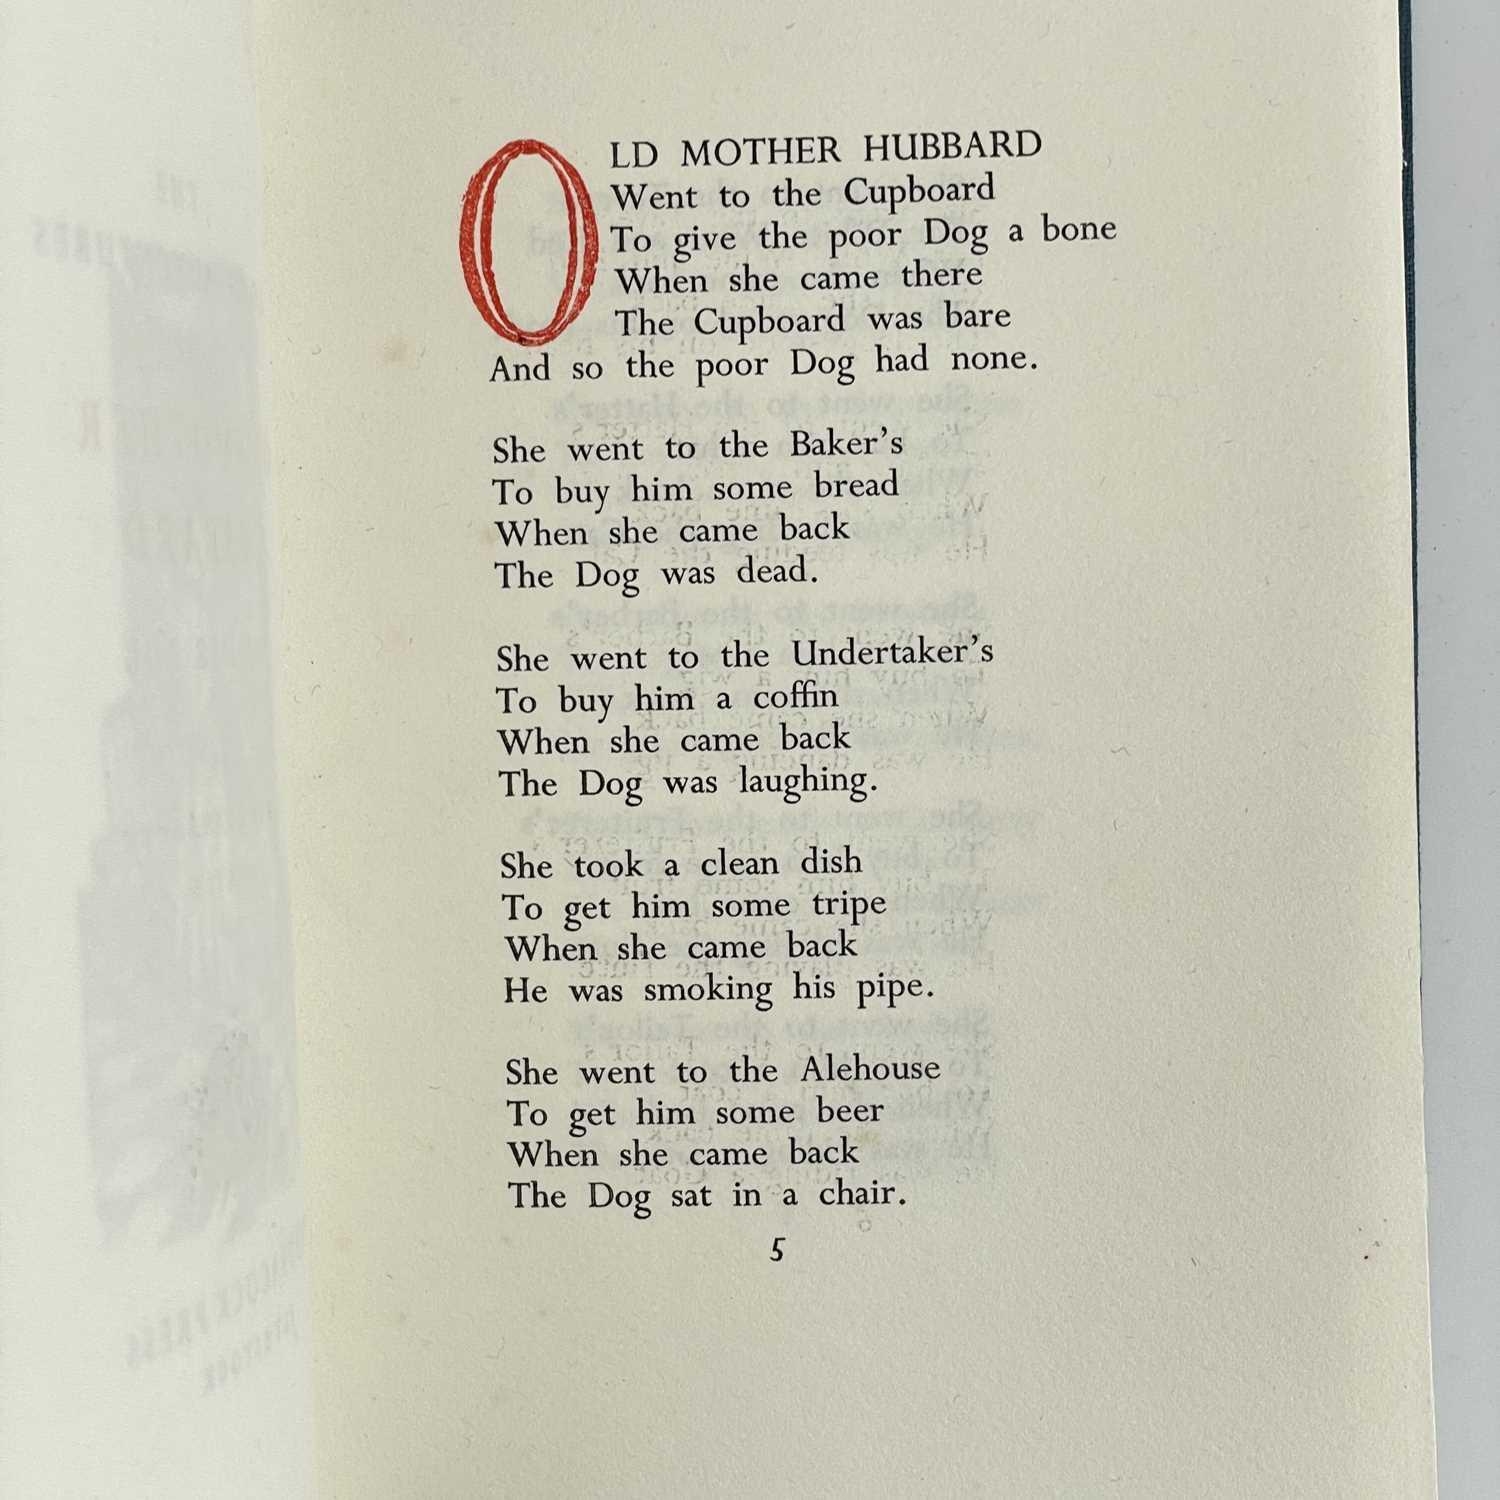 OLD MOTHER HUBBARD
Went to the Cupboard
To give the poor Dog a bone
When she came there
The Cupboard was bare
And so the poor Dog had none.
She went to the Baker's
To buy him some bread
When she came back
The Dog was dead.
She went to the Undertaker's
To buy him a coffin
When she came back
The Dog was laughing.
She took a clean dish
To get him some tripe
When she came back
He was smoking his pipe.
She went to the Alehouse
To get him some beer
When she came back
The Dog sat in a chair.
5